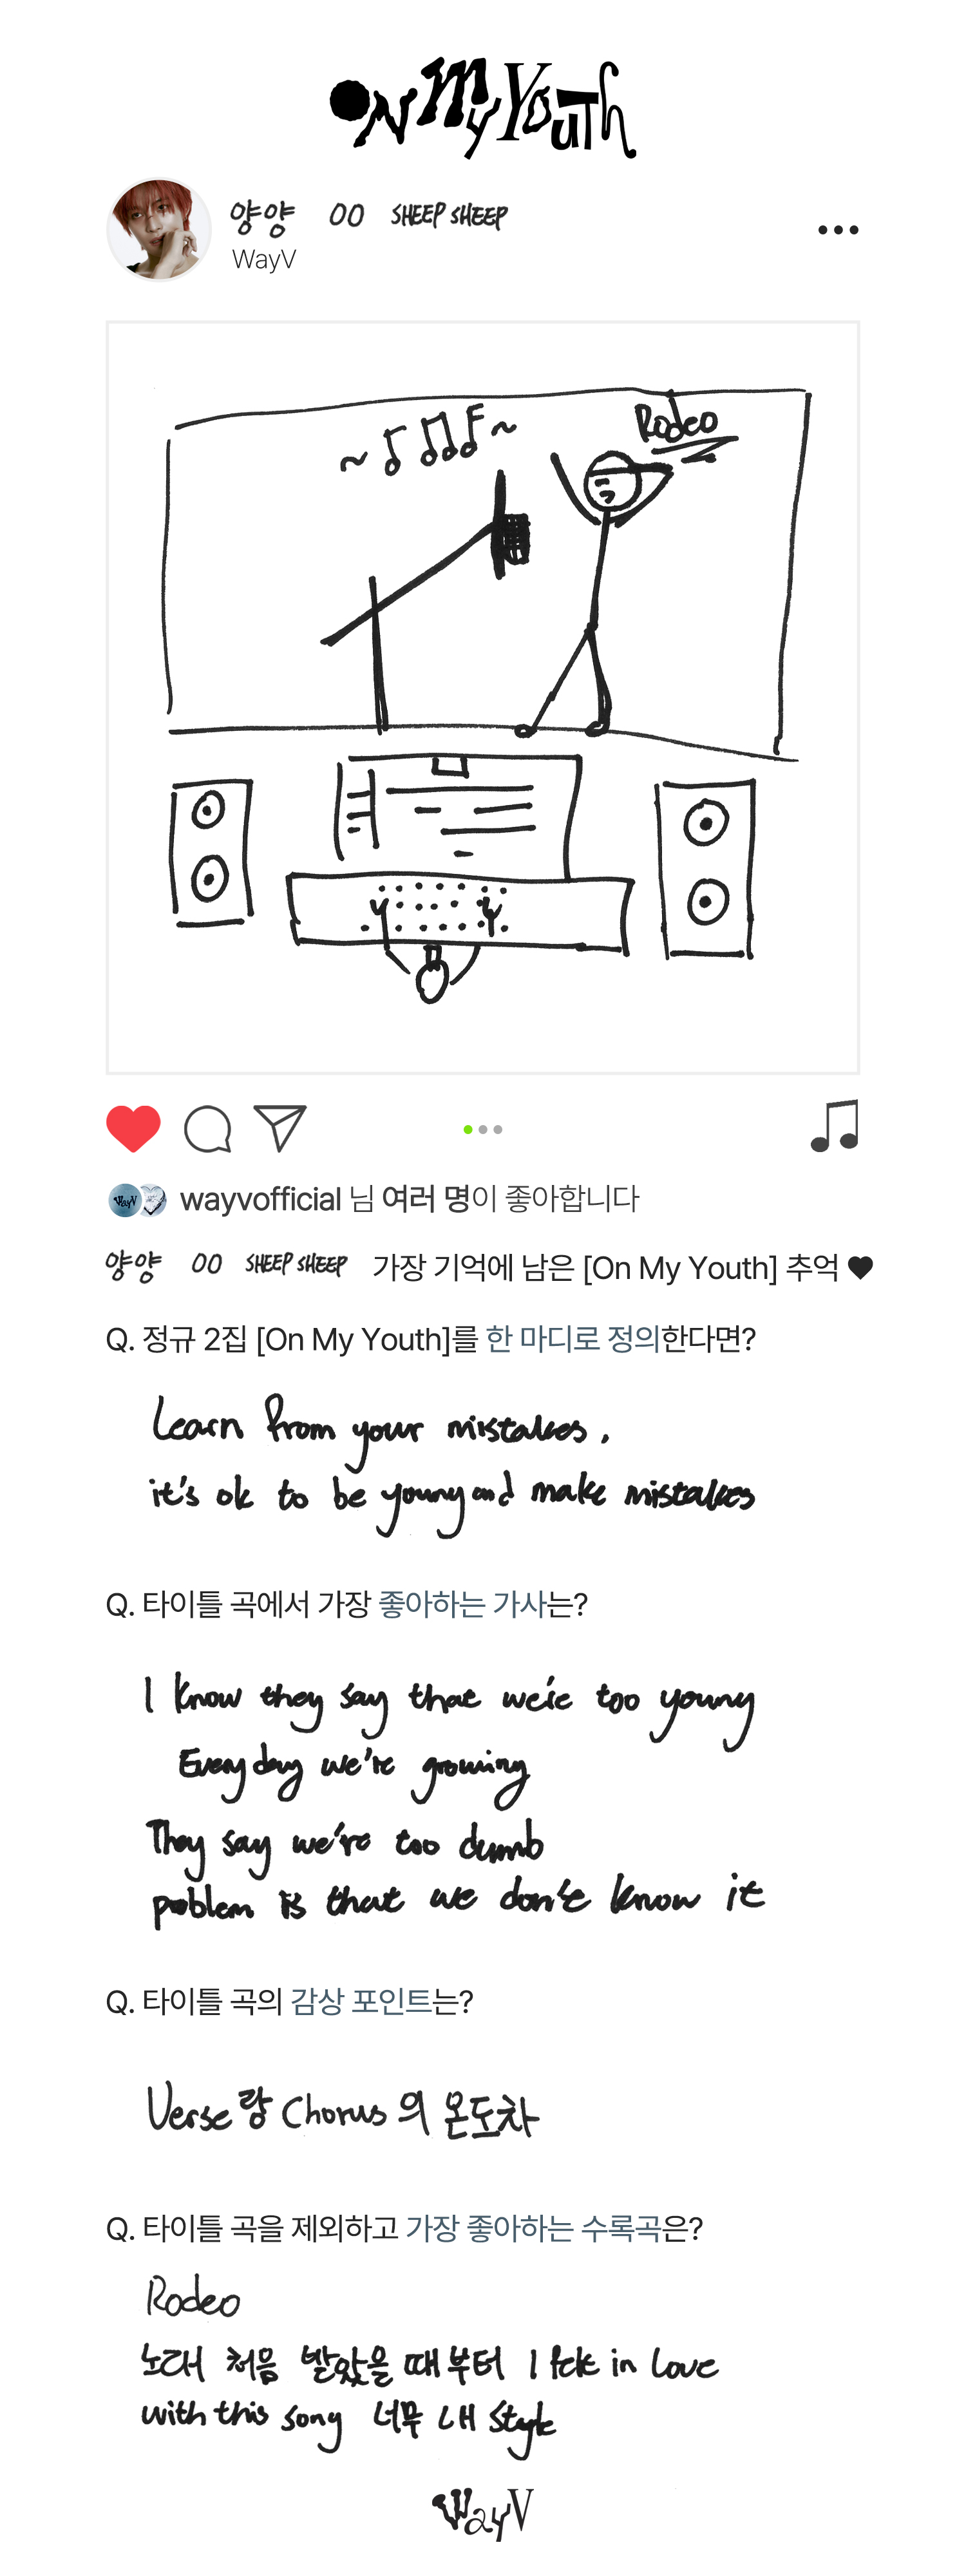 ON my Youth
양양 00 SHEEP SHEEP
WayV
Rodeo
wayvofficial 님 여러 명이 좋아합니다
양양 00 SHEEP SHEEP 가장 기억에 남은 [On My Youth] 추억 ♥
Q. 정규 2집 [On My Youth]를 한 마디로 정의한다면?
Learn from your mistakes.
it's ok to be young and make mistakes
Q. 타이틀 곡에서 가장 좋아하는 가사는?
I know they say that we're too young
Everyday we're growing
They say we're too dumb
problem is that we don't know it
Q. 타이틀 곡의 감상 포인트는?
Verse랑 Chorus의 온도차
Q. 타이틀 곡을 제외하고 가장 좋아하는 수록곡은?
Rodeo
노래 처음 받았을 때부터 I felt in love
with this song 너무 내 style
WayV